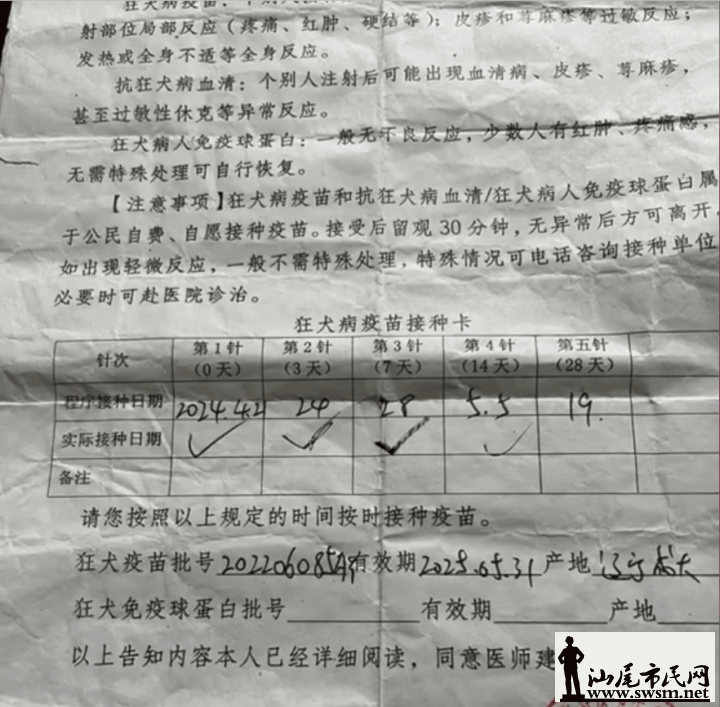 狂犬病疫苗：个别人
射部位局部反应（疼痛、红肿、硬结等）；皮疹和荨麻疹等过敏反应；
发热或全身不适等全身反应。
抗狂犬病血清：个别人注射后可能出现血清病、皮疹、荨麻疹，
甚至过敏性休克等异常反应。
狂犬病人免疫球蛋白：一般无不良反应，少数人有红肿、疼痛感，
无需特殊处理可自行恢复。
【注意事项】狂犬病疫苗和抗狂犬病血清/狂犬病人免疫球蛋白属
于公民自费、自愿接种疫苗。接受后留观30分钟，无异常后方可离开
如出现轻微反应，一般不需特殊处理，特殊情况可电话咨询接种单位
必要时可赴医院诊治。
狂犬病疫苗接种卡
针次 第1针（0天） 第2针（3天） 第3针（7天） 第4针（14天） 第五针（28天）
程序接种日期 2024.4.21 24 28 5.5 19.
实际接种日期 ✓ ✓ ✓ ✓
备注
请您按照以上规定的时间按时接种疫苗。
狂犬疫苗批号 有效期2025.05.31 产地 辽宁成大
狂犬免疫球蛋白批号 有效期 产地
以上告知内容本人已经详细阅读，同意医师建
汕尾市民网
www.swsm.net